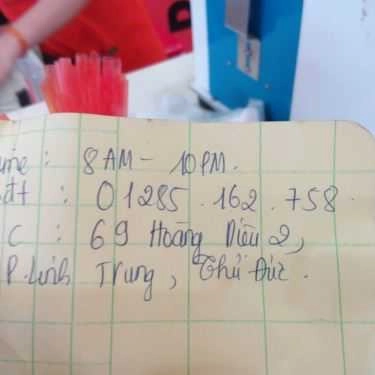 ime: 8 AM - 10 PM.
đt : 01285.162.758.
C : 69 Hoàng Diệu 2,
P. Linh Trung, Thủ Đức.